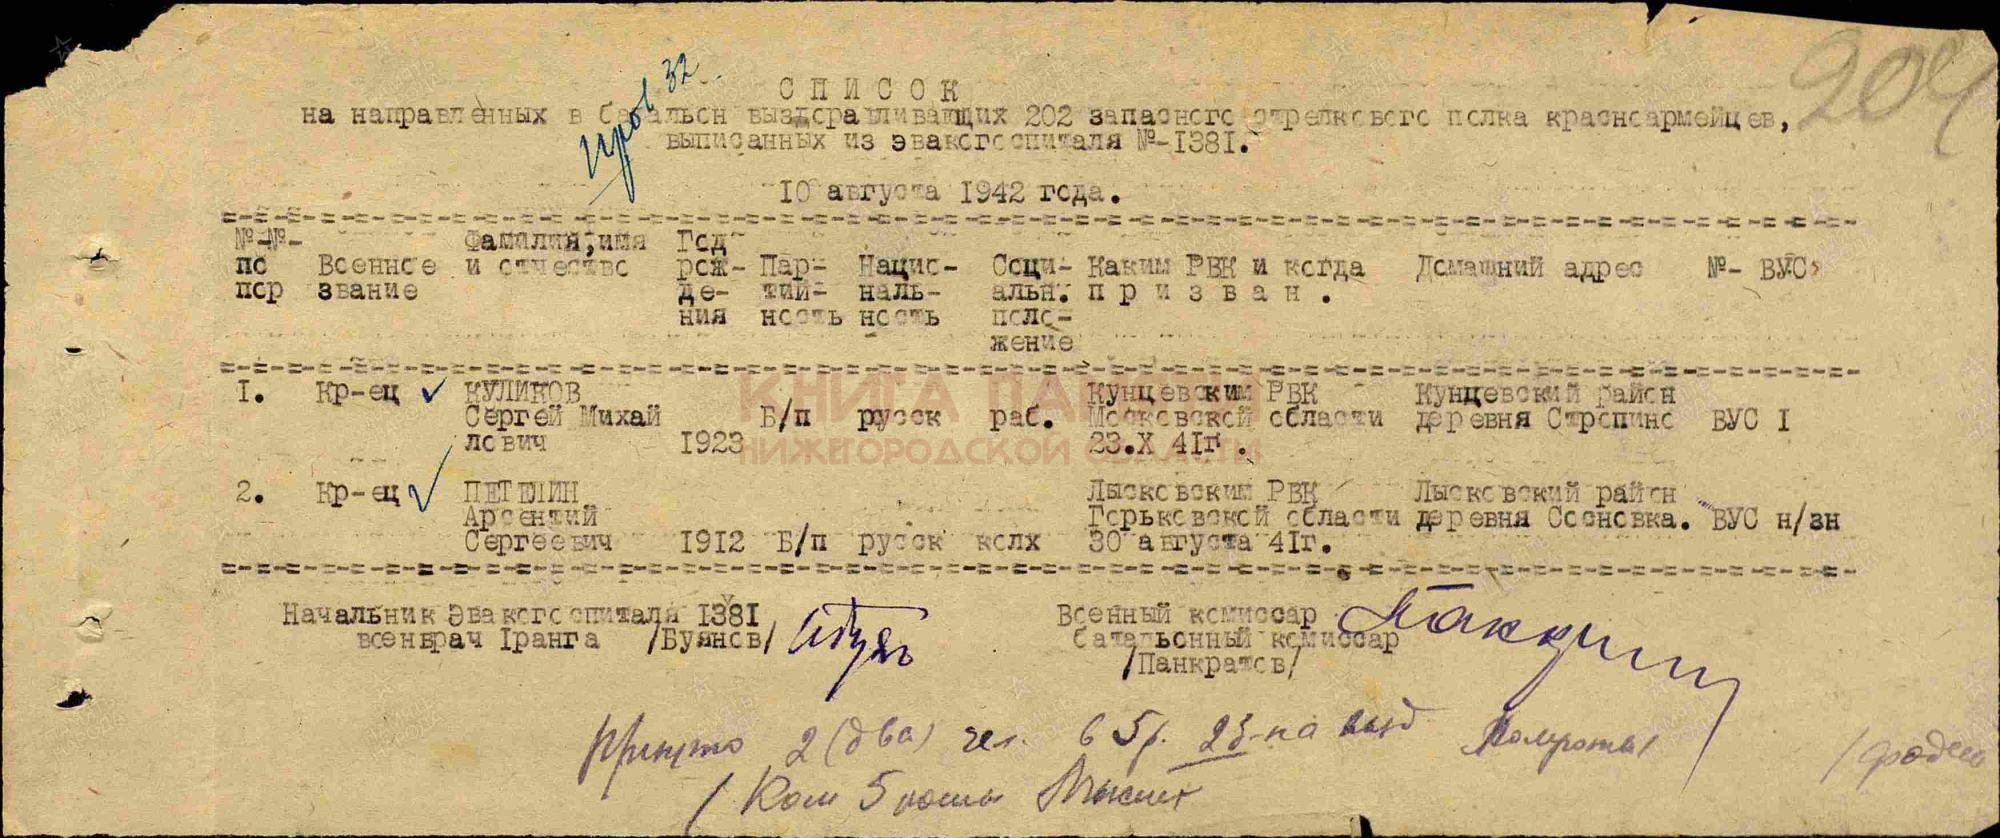 204
пров 32
СПИСОК
на направленных в батальон выздоравливающих 202 запасного стрелкового полка красноармейцев,
выписанных из эвакогоспиталя №-1381.
10 августа 1942 года.
№-№- Фамилия,имя Год
по Военное и отчество рож- Пар- Нацио- Соци- Каким РВК и когда Домашний адрес №- ВУС
пор звание де- тий- наль- альн. п р и з в а н .
ния ность ность поло-
жение
1. Кр-ец КУЛИКОВ Кунцевским РВК Кунцевский район
Сергей Михай Б/п русск раб. Московской области деревня Стропино ВУС I
лович 1923 23.X 41г.
2. Кр-ец ПЕТЕЛИН Лысковским РВК Лысковский район
Арсентий Горьковской области деревня Сосновка. ВУС н/зн
Сергеевич 1912 Б/п русск колх 30 августа 41г.
КНИГА ПАМЯТИ
НИЖЕГОРОДСКОЙ ОБЛАСТИ
Начальник Эвакогоспиталя 1381 Военный комиссар
военврач Iранга /Буянов/ батальонный комиссар
/Панкратов/
Принято 2 (два) чел. в 5р. 2б-на вызд
Ком 5 роты